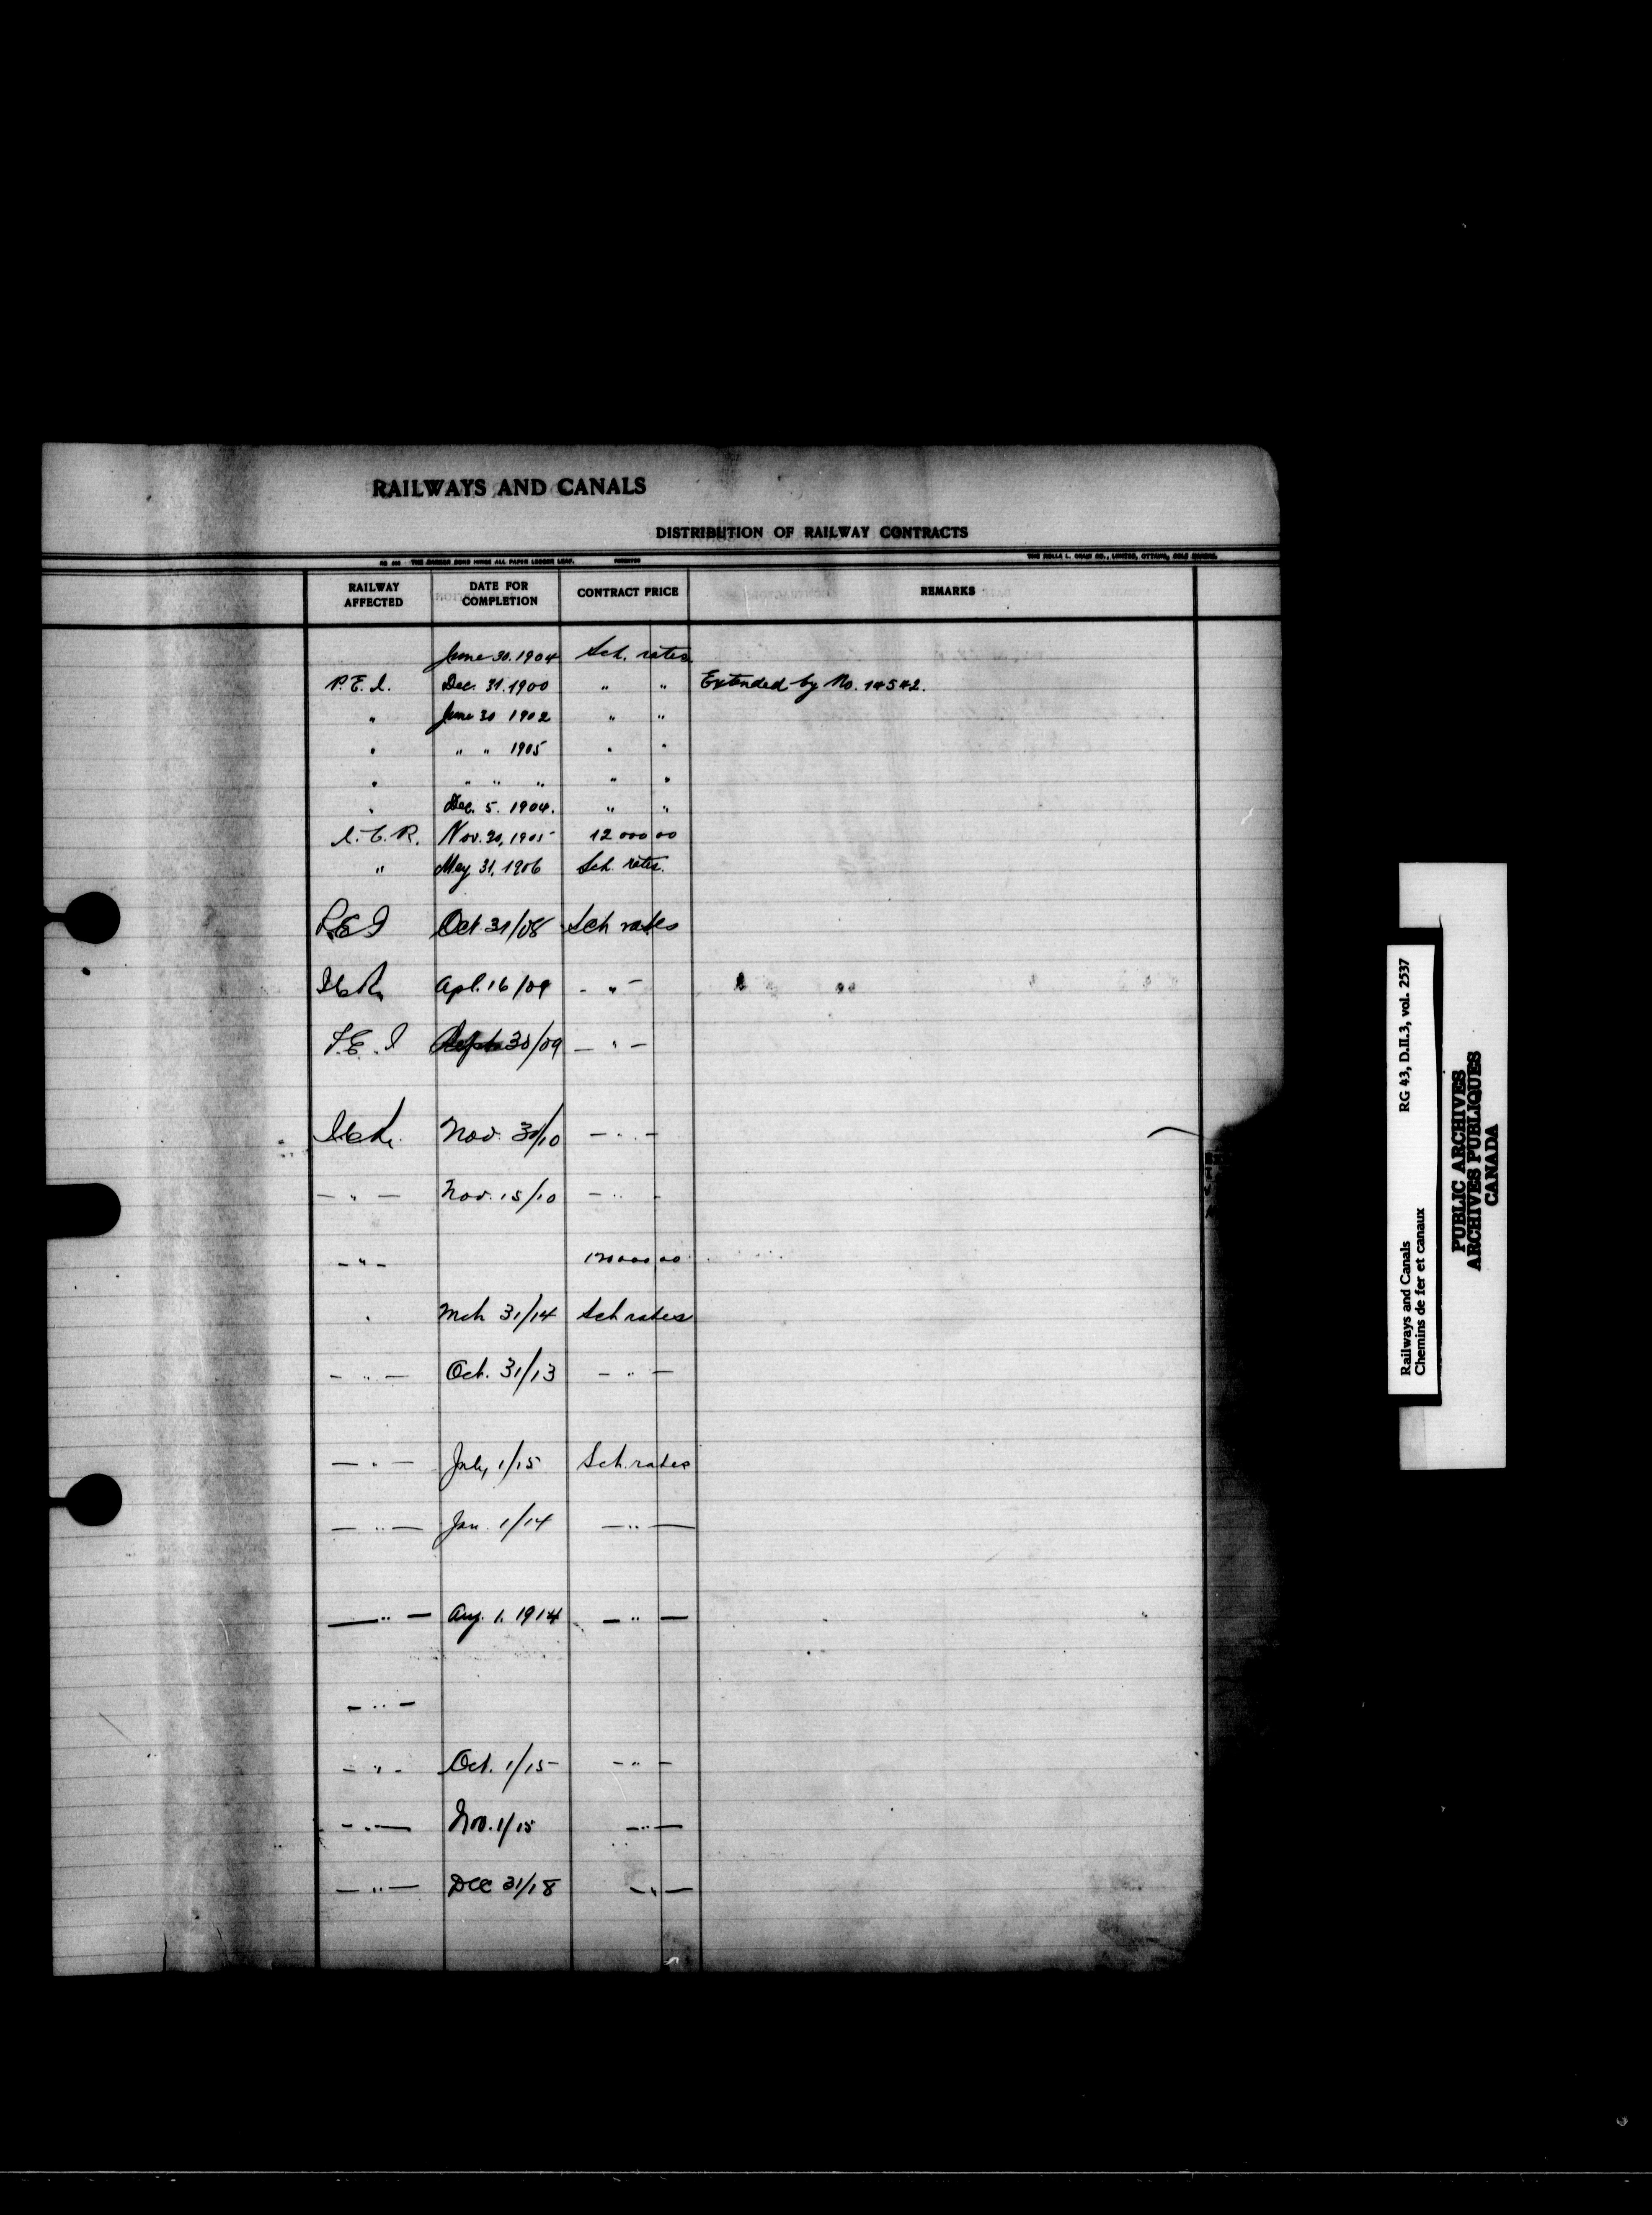 RAILWAYS AND CANALS
DISTRIBUTION OF RAILWAY CONTRACTS
RAILWAY AFFECTED DATE FOR COMPLETION CONTRACT PRICE REMARKS
June 30. 1904 Sch. rates
P.E.I. Dec. 31. 1900 " " Extended by No. 14542.
" June 30 1902 " "
" " " 1905 " "
" " " " " "
" Dec. 5. 1904. " "
I.C.R. Nov. 30, 1905 12 000 00
" May 31, 1906 Sch. rates.
P.E.I Oct 31/08 Sch rates
I.C.R. Apl. 16/09 - " -
P.E.I 30/09 - " -
I.C.R. Nov. 30/10 - " -
- " - Nov. 15/10 - " -
- " -
" Mch 31/14 Sch rates
- " - Oct. 31/13 - " -
- " - July 1/15 Sch. rates
- " - Jan. 1/14 - " -
- " - Aug. 1. 1914 - " -
- " -
- " - Oct. 1/15 - " -
- " - Nov. 1/15 - " -
- " - Dec 31/18 - " -
Railways and Canals RG 43, D.II.3, vol. 2537
Chemins de fer et canaux
PUBLIC ARCHIVES
ARCHIVES PUBLIQUES
CANADA